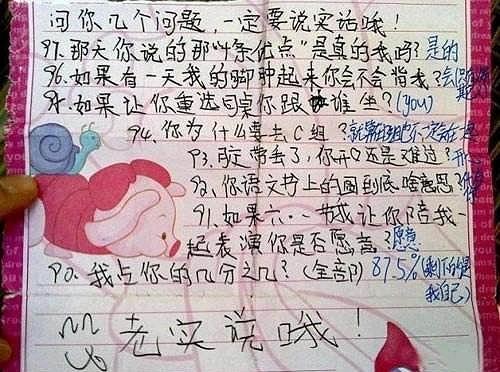 问你几个问题,一定要说实话哦!
97.那天你说的那"十条优点"是真的我吗?是的
96.如果有一天我的脚肿起来你会不会背我?会
95.如果让你重选同桌你跟谁坐?(you)
94.你为什么要去C组?
93.肯定带丢了,你开心还是难过?
92.你语文书上的圈到底啥意思?
91.如果六·一节我让你陪我一
起表演你是否愿意?愿意
90.我占你的几分之几?(全部)87.5%(剩下的是
我自己)
老实说哦!